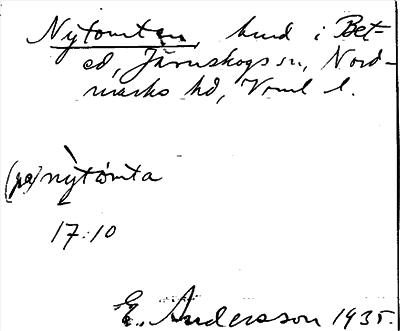 Nytomten, hmd i Bet-
ed, Järnskogs sn, Nord-
marks hd, Vrml l.
(på) nỳtòmta
17.10
E. Andersson 1935.